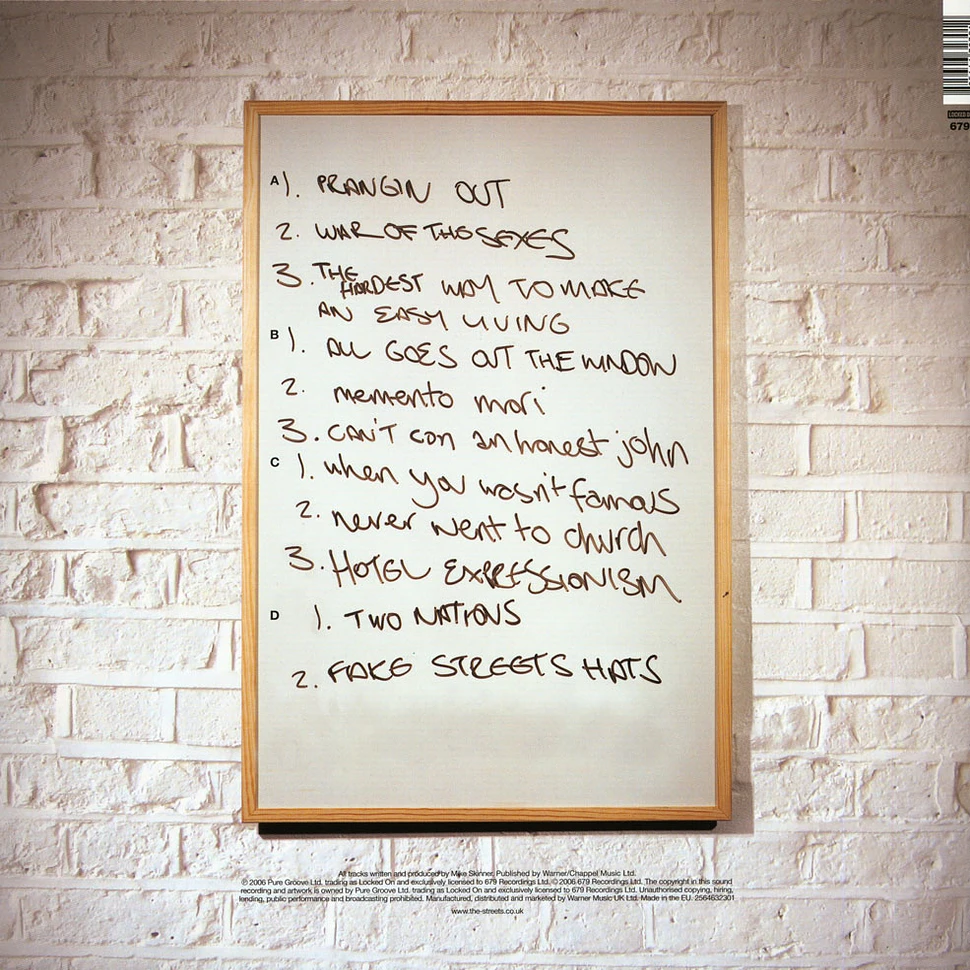 LOCKED
679
A 1. PRANGIN OUT
2. WAR OF THE SEXES
3. THE
HARDEST WAY TO MAKE
AN EASY LIVING
B 1. ALL GOES OUT THE WINDOW
2. memento mori
3. CAN'T con an honest john
C 1. when you wasn't famous
2. never went to church
3. HOTEL EXPRESSIONISM
D 1. TWO NATIONS
2. FAKE STREETS HATS
All tracks written and produced by Mike Skinner. Published by Warner/Chappel Music Ltd.
℗ 2006 Pure Groove Ltd. trading as Locked On and exclusively licensed to 679 Recordings Ltd. © 2006 679 Recordings Ltd. The copyright in this sound
recording and artwork is owned by Pure Groove Ltd. trading as Locked On and exclusively licensed to 679 Recordings Ltd. Unauthorised copying, hiring,
lending, public performance and broadcasting prohibited. Manufactured, distributed and marketed by Warner Music UK Ltd. Made in the EU. 2564632301
www.the-streets.co.uk